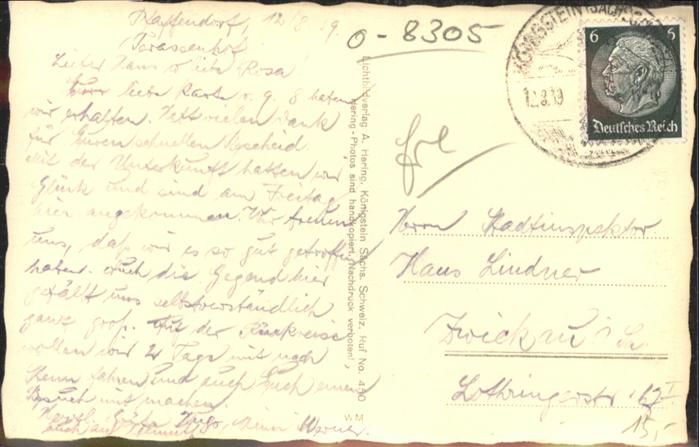 Pfaffendorf, 12.8.39.
Terassenhof
Lieber Hans u. liebe Rosa
Eure liebe Karte v. 9. 8 haben
wir erhalten. Vielen Dank
für Euren schnellen Bescheid
Mit der Unterkunft hatten wir
Glück und sind am Freitag
hier angekommen. Wir freuen
uns, daß wir es so gut getroffen
haben. Auch die Gegend hier
gefällt uns selbstverständlich
ganz groß. Auf der Rückreise
wollen wir 2 Tage mit nach
fahren und auch Euch einen
Besuch mit machen.
Herzl. Grüße
Werner
0-8305
Lichtbildverlag A. Hering, Königstein Sächs. Schweiz, Ruf No. 450
Hering-Photos sind handkopiert. Nachdruck verboten!
WM
KÖNIGSTEIN (SÄCHS
12.8.39
6 6
Deutsches Reich
Herrn Stadtinspektor
Hans Lindner
Zwickau i. Sa.
Lothringerstr. 62 I
15,-